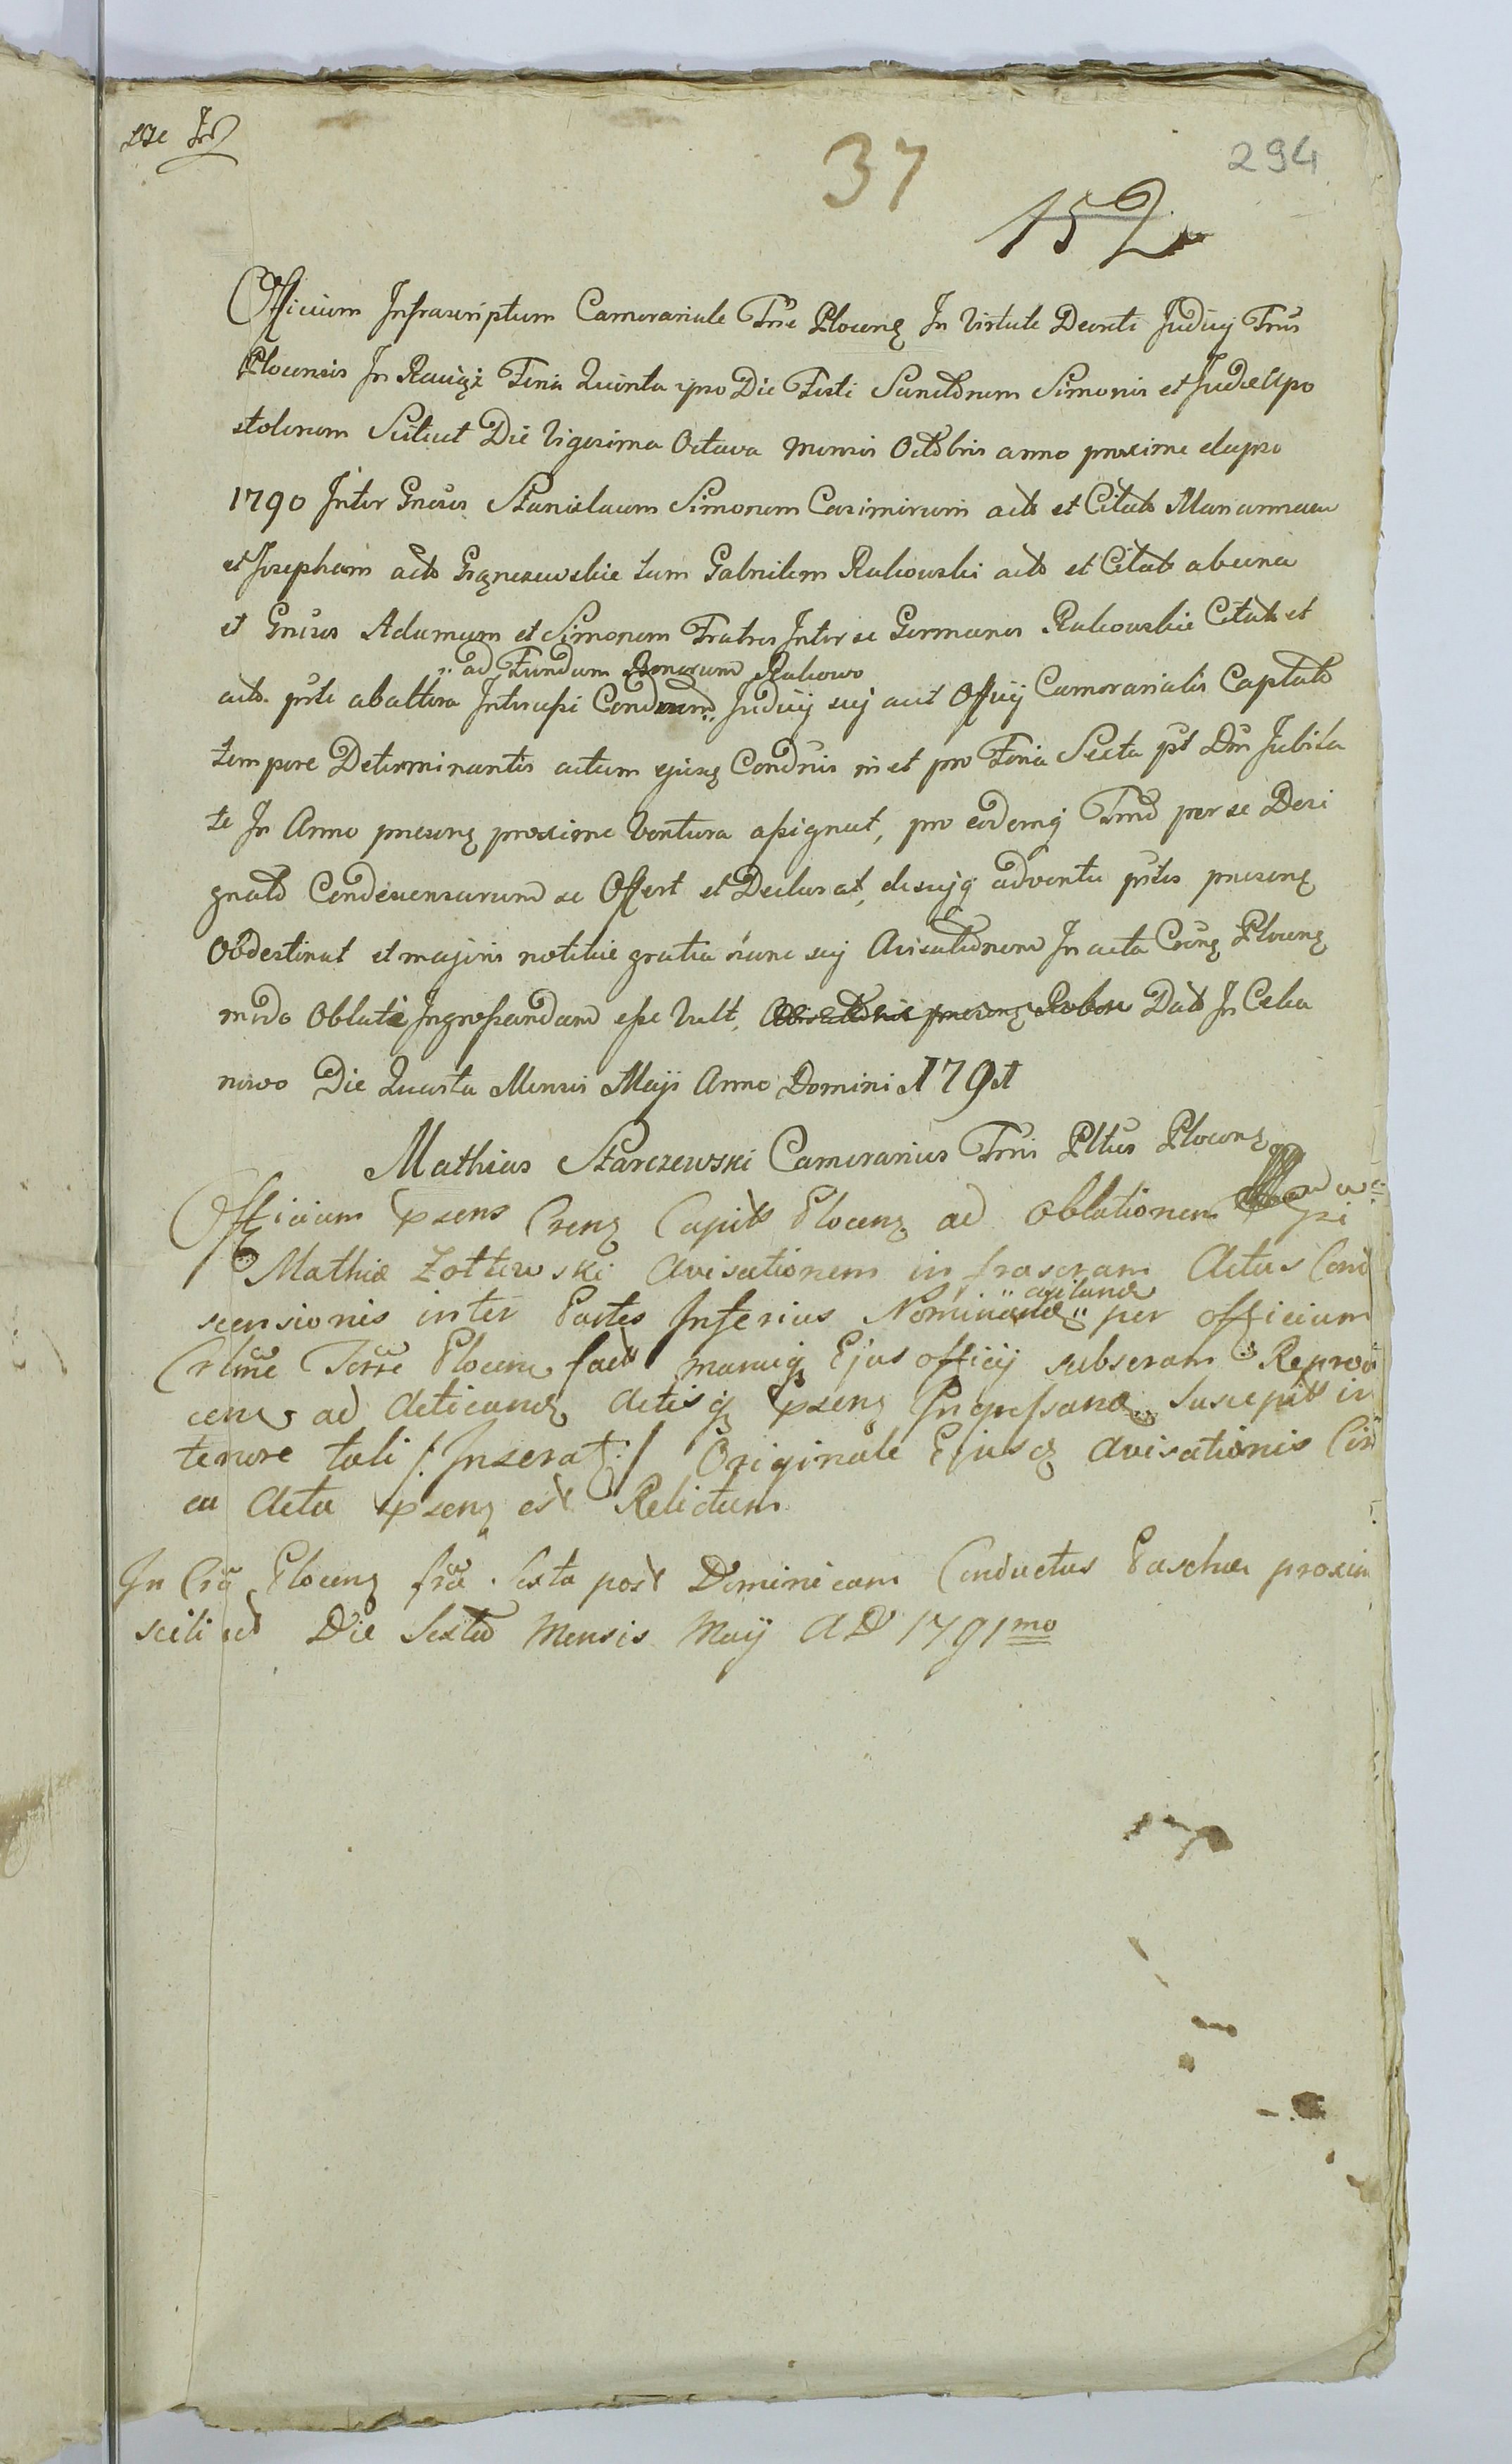 37
294
152
Officium Infrascriptum Camerariale Trrae Plocenȩ In Virtute Decreti Judicij Trris
Plocensis In Raciąż Feria Quinta ipso Die Festi Sanctorum Simonis et Judae Apo
stolorum Scilicet Die Vigesima Octava Mensis Octobris anno proxime elapso
1790 Inter Gnosos Stanislaum Simonem Casimirum acts et Citats Mariannam
et Josepham acts Grąnczewskie tum Gabrielem Rakowski acts et Citats ab una
et Gnosos Adamum et Simonem Fratres Inter se Germanos Rakowskie Citats et
" ad Fundum Bonorum Rakowo
acts. prte ab altera Intercessi Condnem " Judicij sui aut Officij Camerarialis Captato
tempore Determinantis actum ejusq Condnis in et pro Feria Sexta pst Dm Jubila
te In Anno presenȩ proxime Ventura assignat, pro eodemq Trmo per se Desi
gnato Condescensurum se Offert et Declarat, de sujq adventu prtes presenȩ
Obdestinat et majoris notitiae gratia hanc sui Avisationem In acta Crensȩ Plocenȩ
modo Oblatae Ingrossandam esse Vult, Dats In Ceka
nowo Die Quarta Mensis Maji Anno Domini 1791
Mathias Starczewski Camerarius Trris Pltus Plocenȩ
Officium pxsens Crenȩ Capits Plocenȩ ad oblationem Gsi
Mathiae Zołtewski Avisationem infrascram Actus Cond
scensionis inter Partes Inferius Nominand " " per officium
Crlme Terre Plocenȩ facts manuq Ejus officij subscram Reprod
cenȩ ad Acticandȩ Actisq pxsenȩ Ingrossandȩ Suscepit in
tenore tali /: Inserat :/ Originale Ejusq avisationis Cir
ca Acta pxsenȩ est Relictum
In Cra Plocenȩ fria Sexta post Dominicam Conductus Paschae proxim
scilicet Die Sexta Mensis Maij AD 1791mo